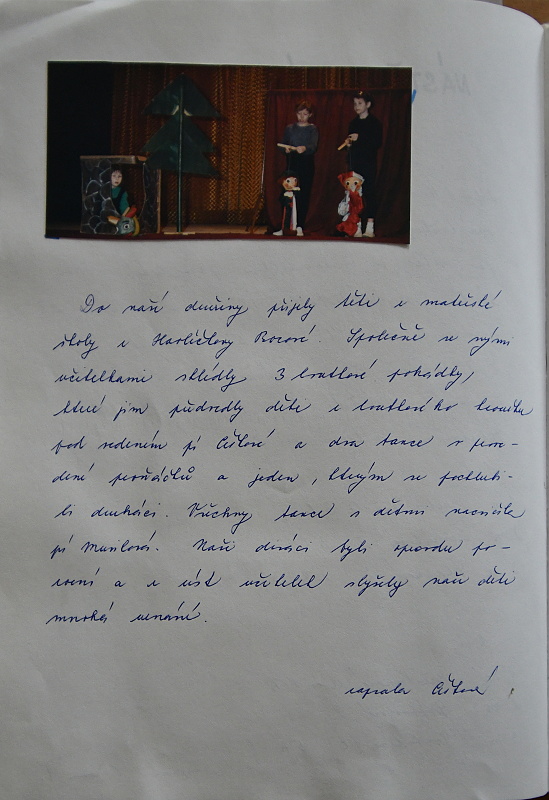 Do naší družiny přijely děti z mateřské
školy z Havlíčkovy Borové. Společně se svými
učitelkami shlédly 3 loutkové pohádky,
které jim předvedly děti z loutkového kroužku
pod vedením pí Ciškové a dva tance v prove-
dení prvňáčků a jeden, kterým se pochlubi-
li druháci. Všechny tance s dětmi nacvičila
pí Musilová. Naši diváci byli opravdu po-
zorní a z úst učitelek slyšely naše děti
mnohá uznání.
zapsala Cišková